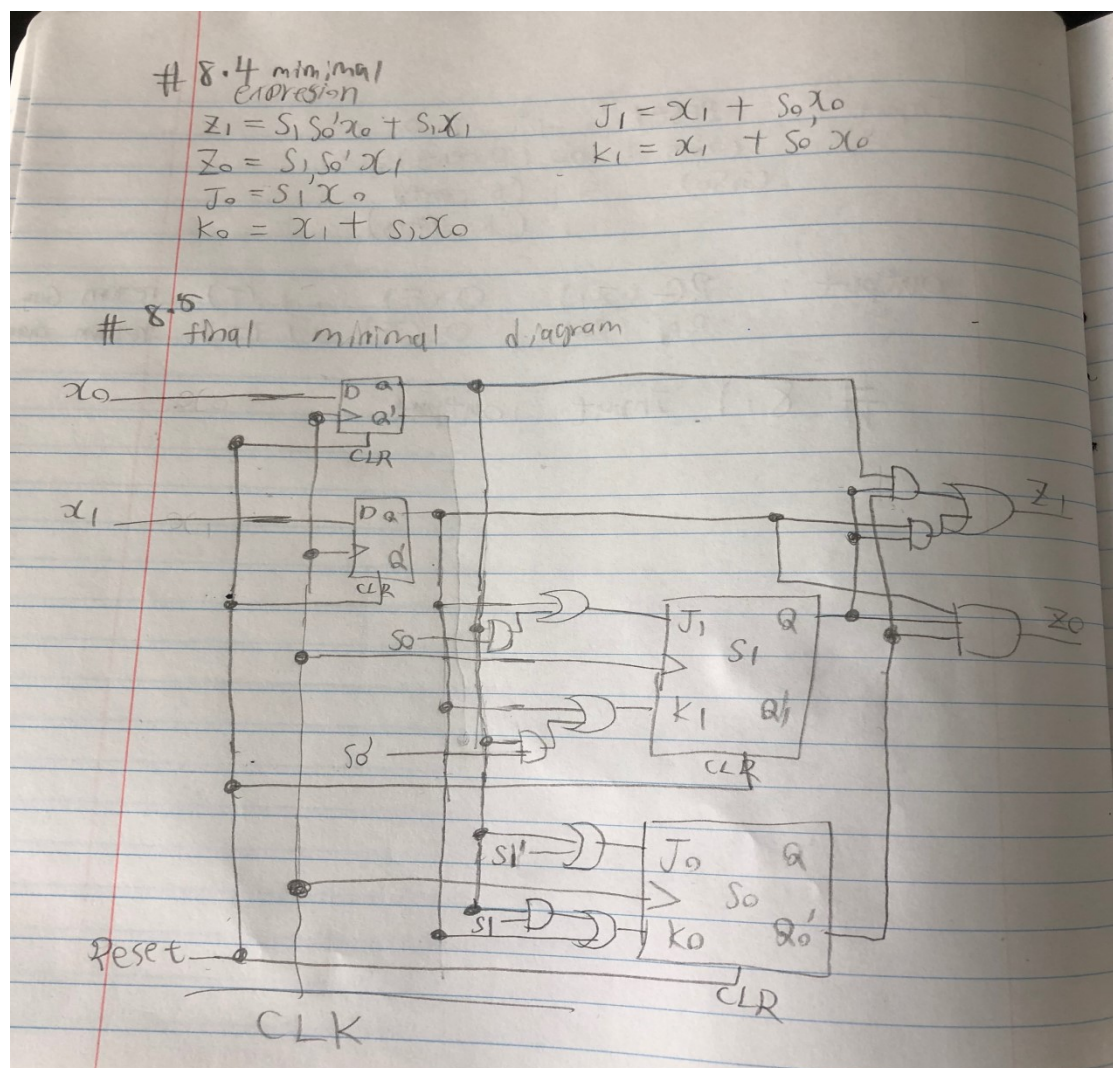 # 8.4 minimal
exoresion
Z1 = S1 S0'x0 + S1X1
Z0 = S1S0'x1
J0 = S1'x0
K0 = x1 + S1x0
J1 = x1 + S0x0
K1 = x1 + S0'x0
# 8.5 final minimal diagram
x0
D Q
Q'
CLR
x1
D Q
Q'
CLR
Z1
Z0
S0
J1 Q
S1
K1 Q1'
CLR
S0'
S1'
J0 Q
S0
S1
K0 Q0'
CLR
Reset
CLK